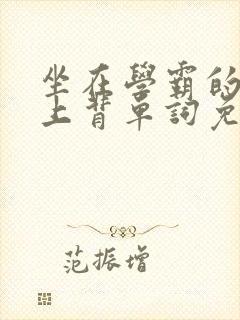 坐在學霸的
上背單詞免
范振增